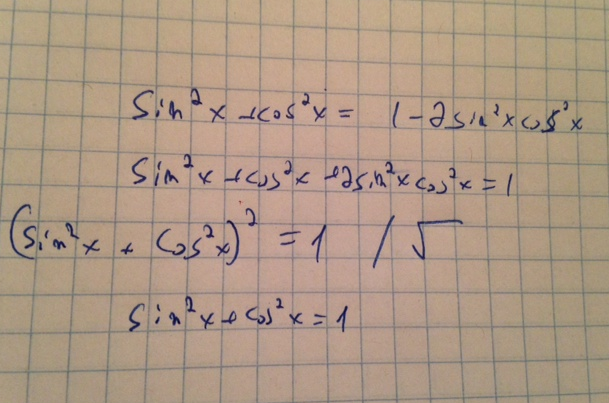 Sin²x + cos²x = 1 - 2sin²x cos²x
Sin²x + cos²x + 2sin²x cos²x = 1
(Sin²x + Cos²x)² = 1 / √
Sin²x + cos²x = 1